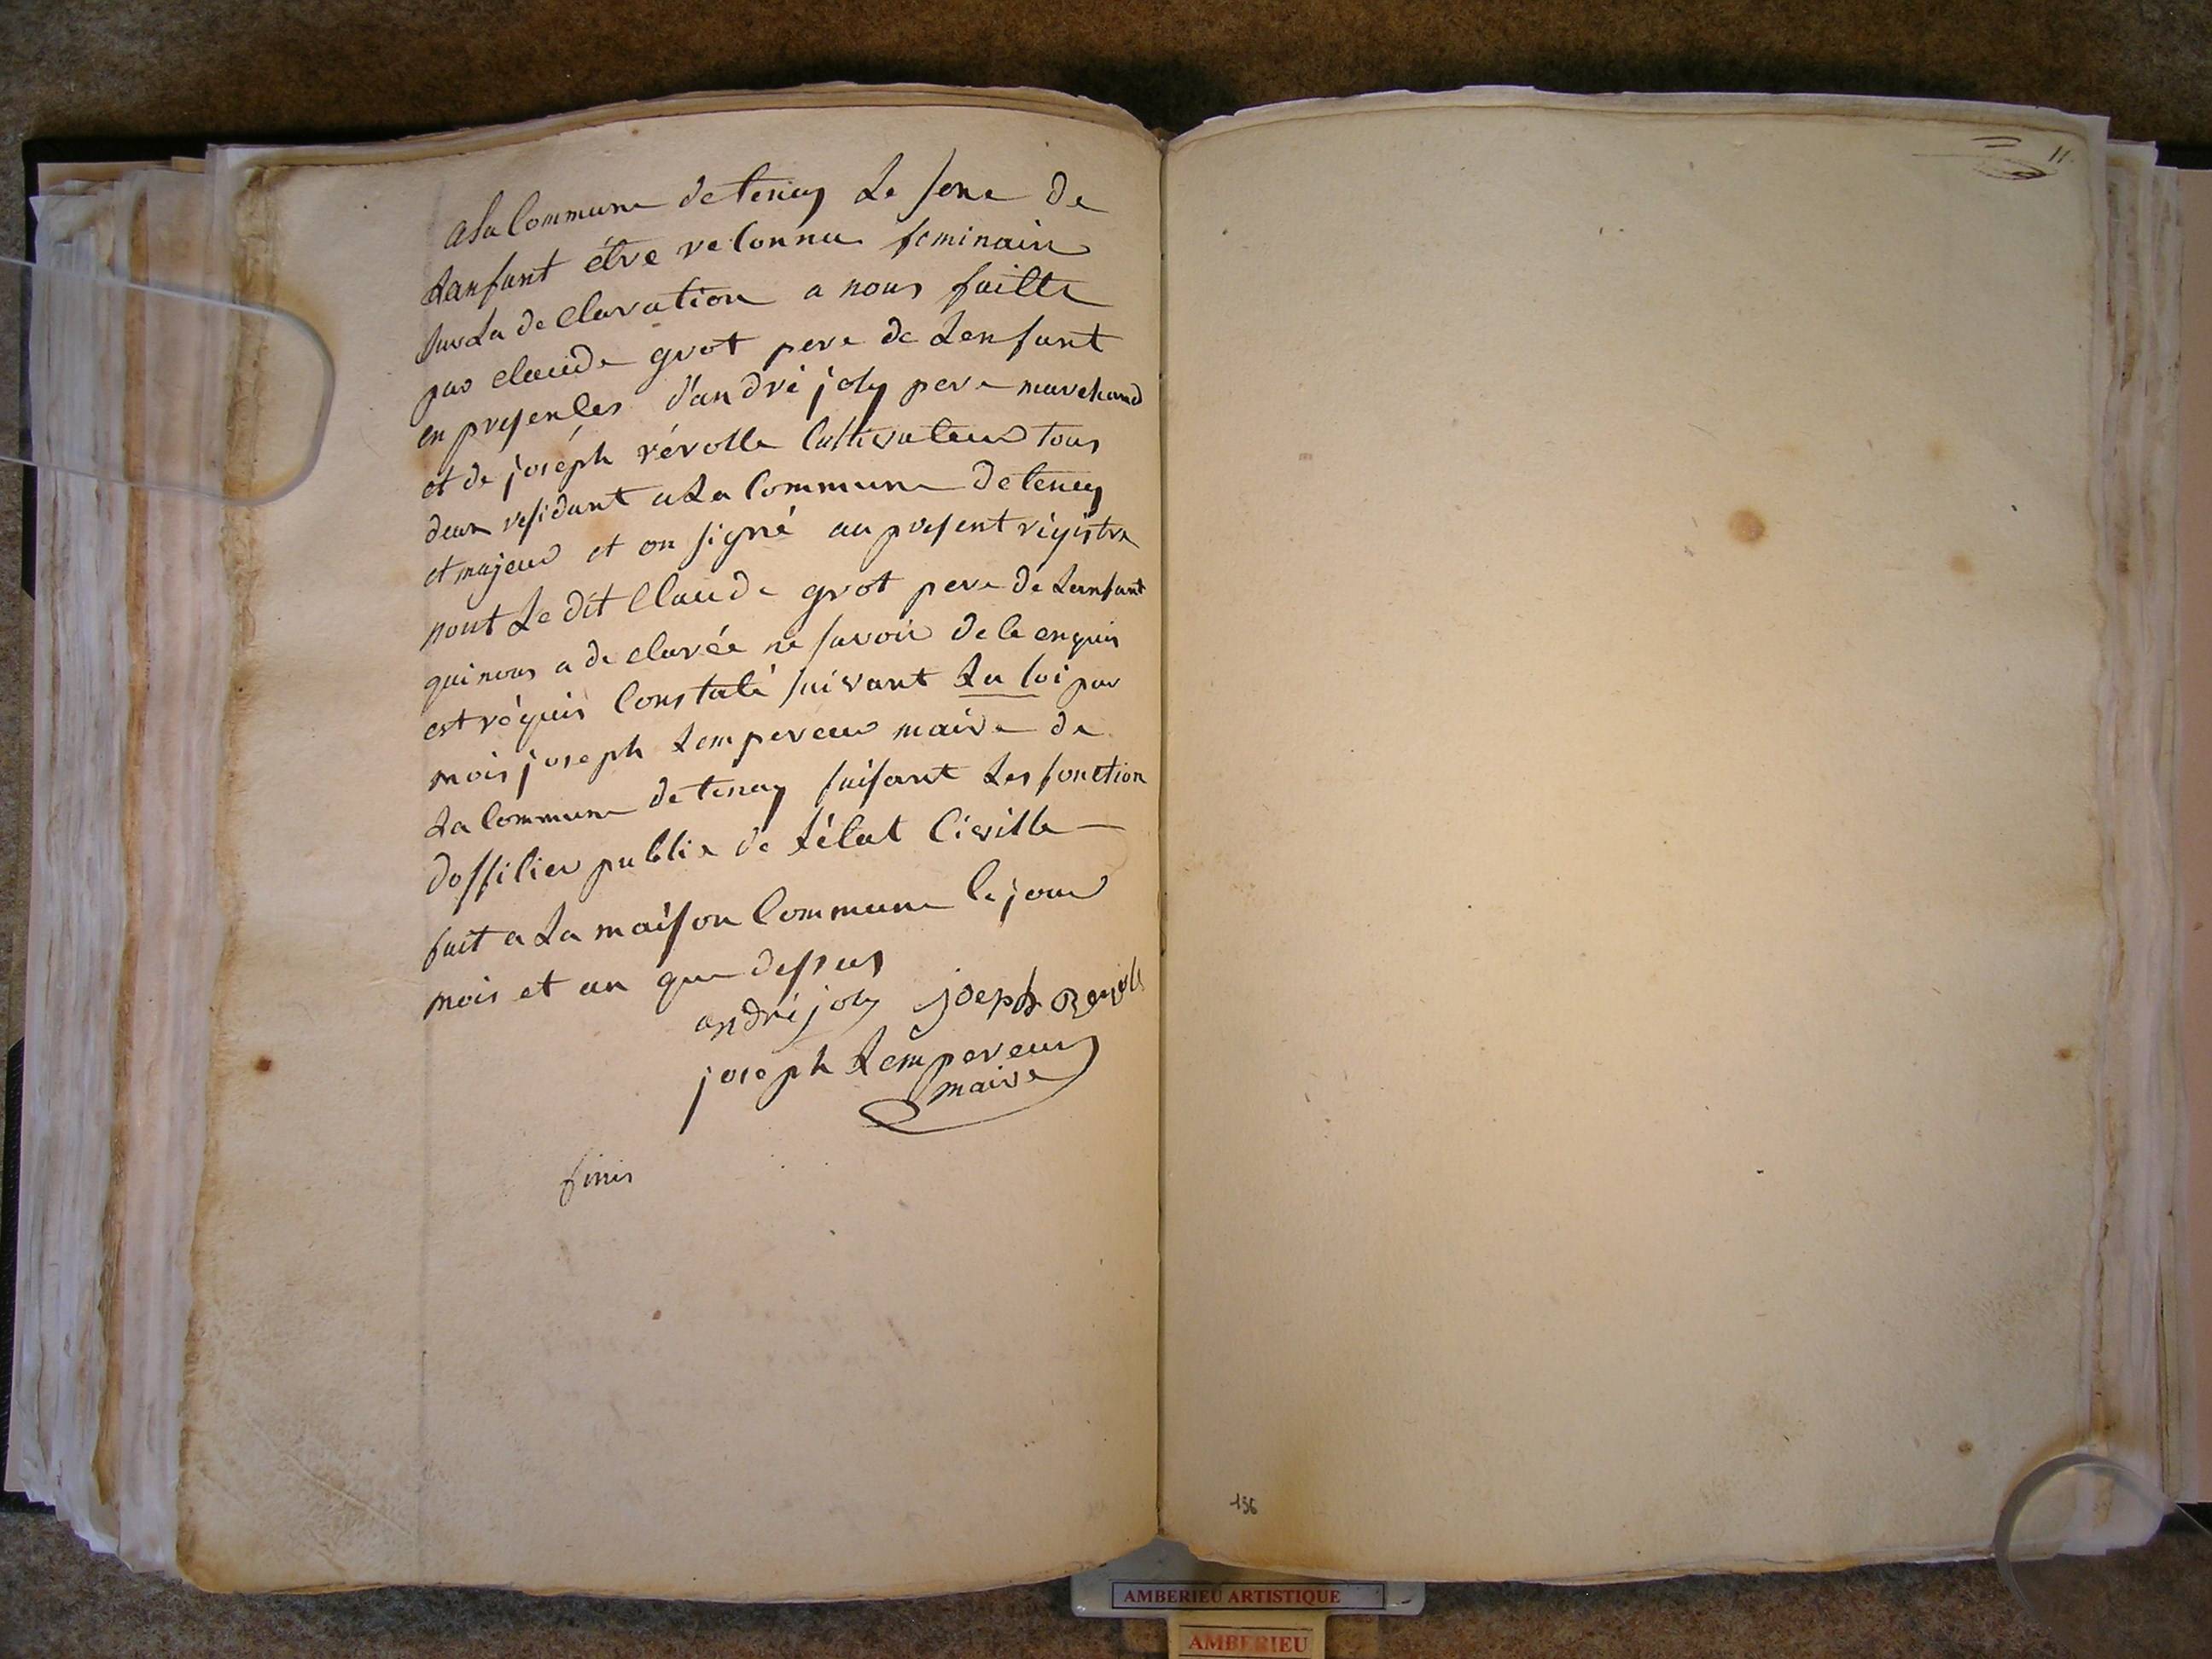 a La Commune de tenay Le sexe de
Lanfant étre reconnu feminain
sur La declaration a nous faitte
par claude grot pere de Lenfant
en presences d'andré joly pere marchand
et de joséph révolle Cultivateur tous
deux residant a La Commune de tenay
et majeur et on signé au present régistre
nont Le dit Claude grot pere de Lanfant
qui nous a declarée ne savoir de ce enquis
est réquis Constaté suivant La loi par
mois joseph Lempereur maire de
La Commune de tenay faisant Les fonction
dofficier public de Létat Civille
fait a La maison Commune le jour
mois et an que dessus
andré joly joseph
joseph Lempereur
maire
finis
11
196
AMBERIEU ARTISTIQUE
AMBERIEU